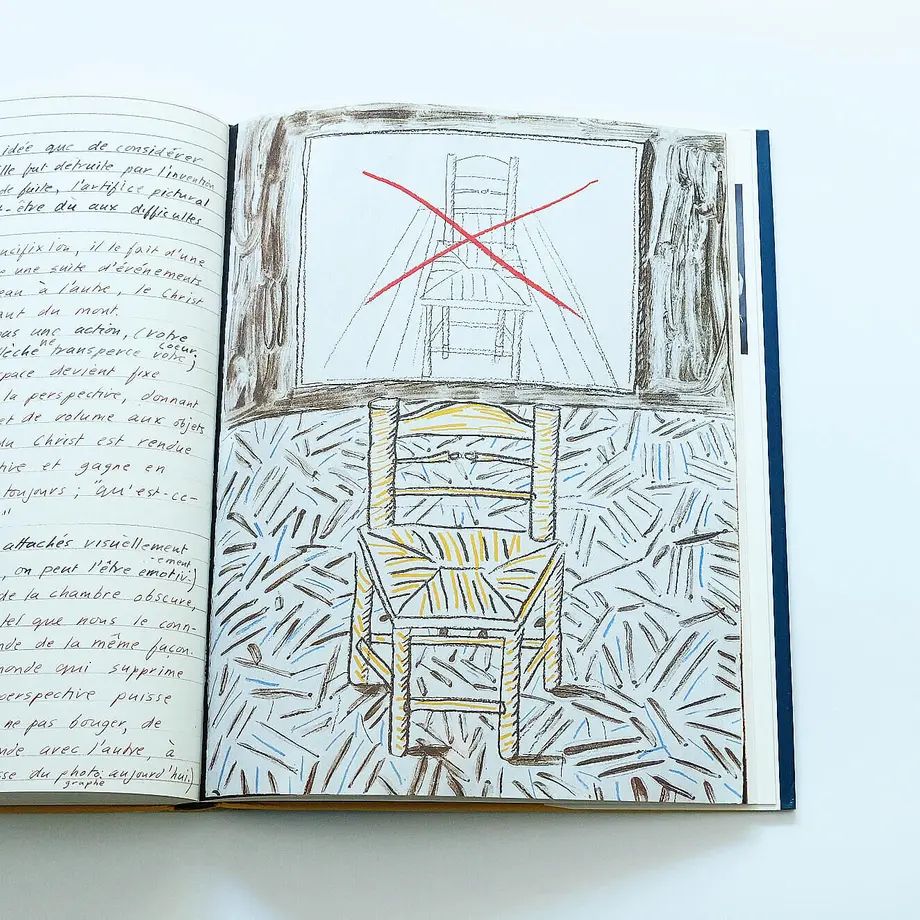 idée que de considérer
elle fut detruite par l'invention
de fuite, l'artifice pictural
-être dû aux difficultes
ucifixion, il le fait d'une
e une suite d'événements
eau à l'autre, le Christ
aut du mont.
pas une action, (votre
lèche ne transperce votre coeur,)
space devient fixe
la perspective, donnant
et de volume aux objets
du Christ est rendue
tive et gagne en
toujours ; "Qu'est-ce-
"
attachés visuellement
, on peut l'être emotiv.)ement
de la chambre obscure,
tel que nous le conn-
nde de la même façon.
monde qui supprime
perspective puisse
ne pas bouger, de
nde avec l'autre, à
sse du photographe aujourd'hui.